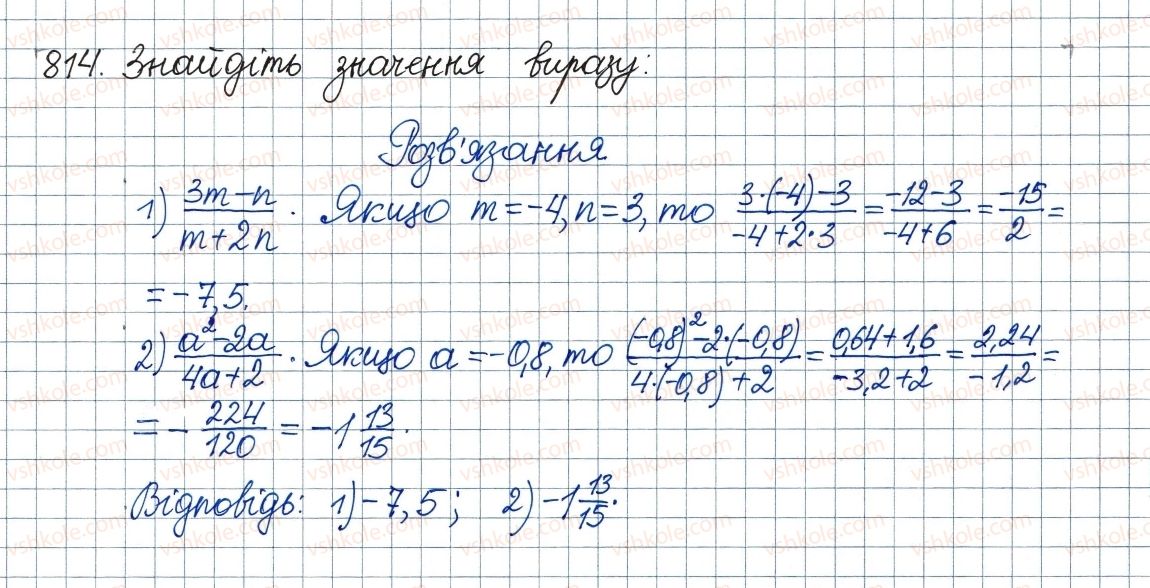 814. Знайдіть значення виразу:
Розв'язання
1) (3m-n)/(m+2n). Якщо m=-4, n=3, то (3·(-4)-3)/(-4+2·3) = (-12-3)/(-4+6) = (-15)/2 =
= -7,5.
2) (a²-2a)/(4a+2). Якщо a=-0,8, то ((-0,8)²-2·(-0,8))/(4·(-0,8)+2) = (0,64+1,6)/(-3,2+2) = (2,24)/(-1,2) =
= - 224/120 = -1 13/15.
Відповідь: 1) -7,5; 2) -1 13/15.